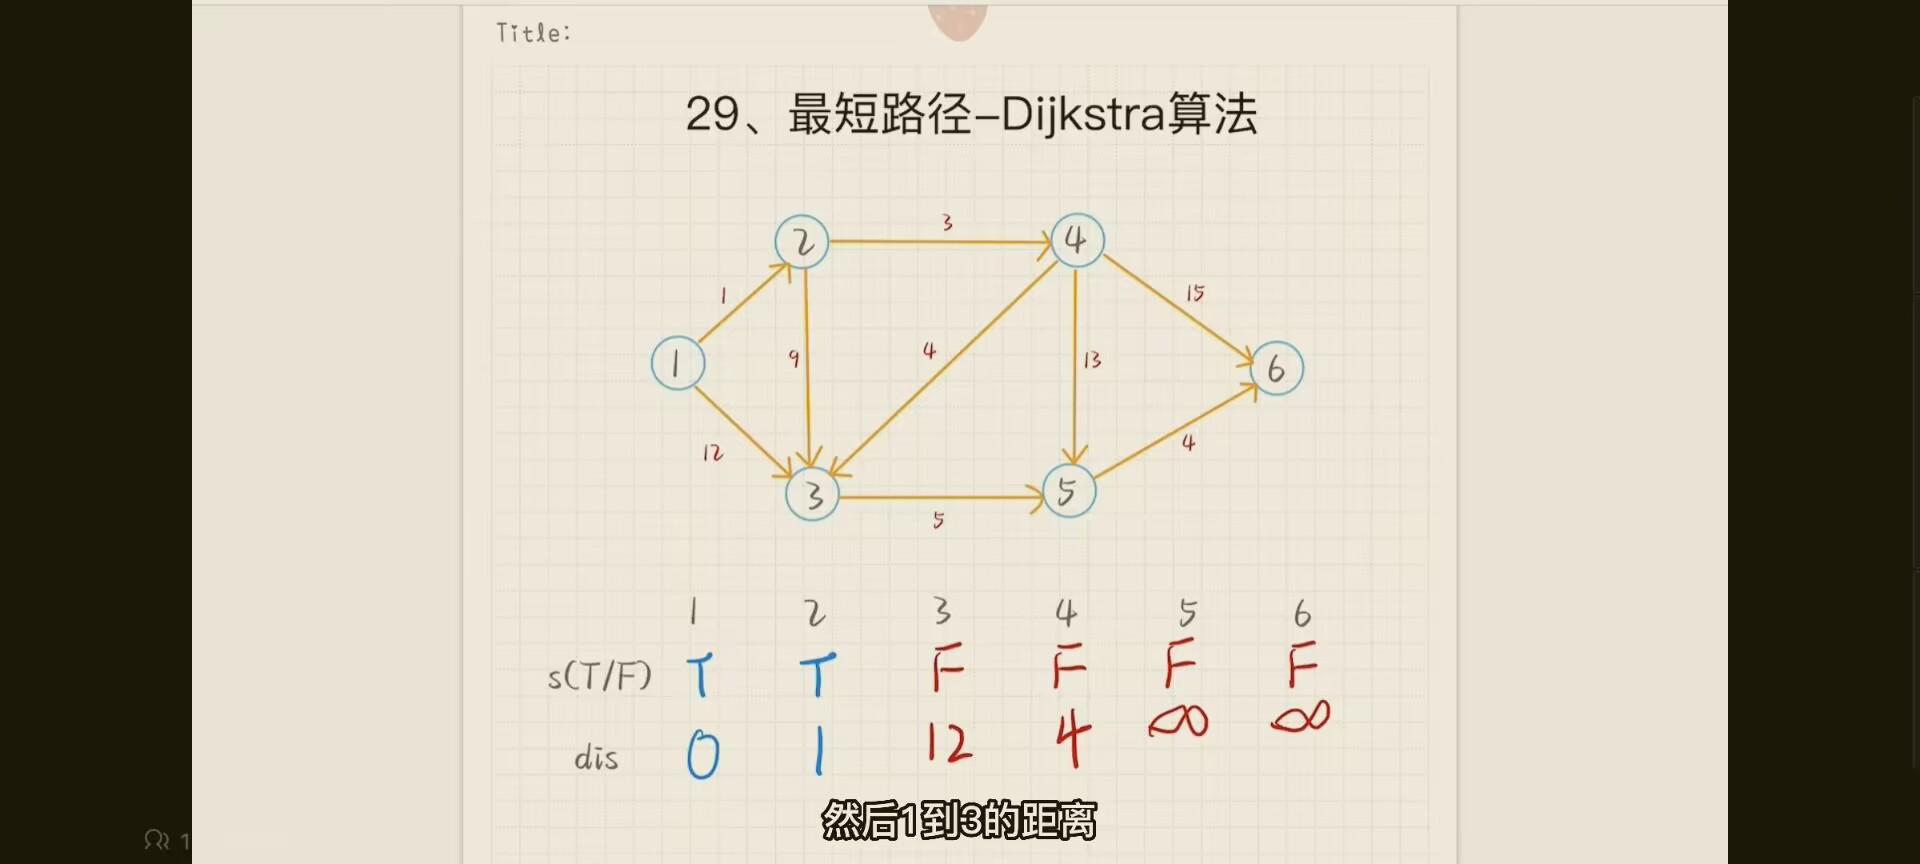 Title:
29、最短路径-Dijkstra算法
2
3
4
1
15
1
9
4
13
6
12
4
3
5
5
1 2 3 4 5 6
s(T/F) T T F F F F
dis 0 1 12 4 ∞ ∞
然后1到3的距离
1